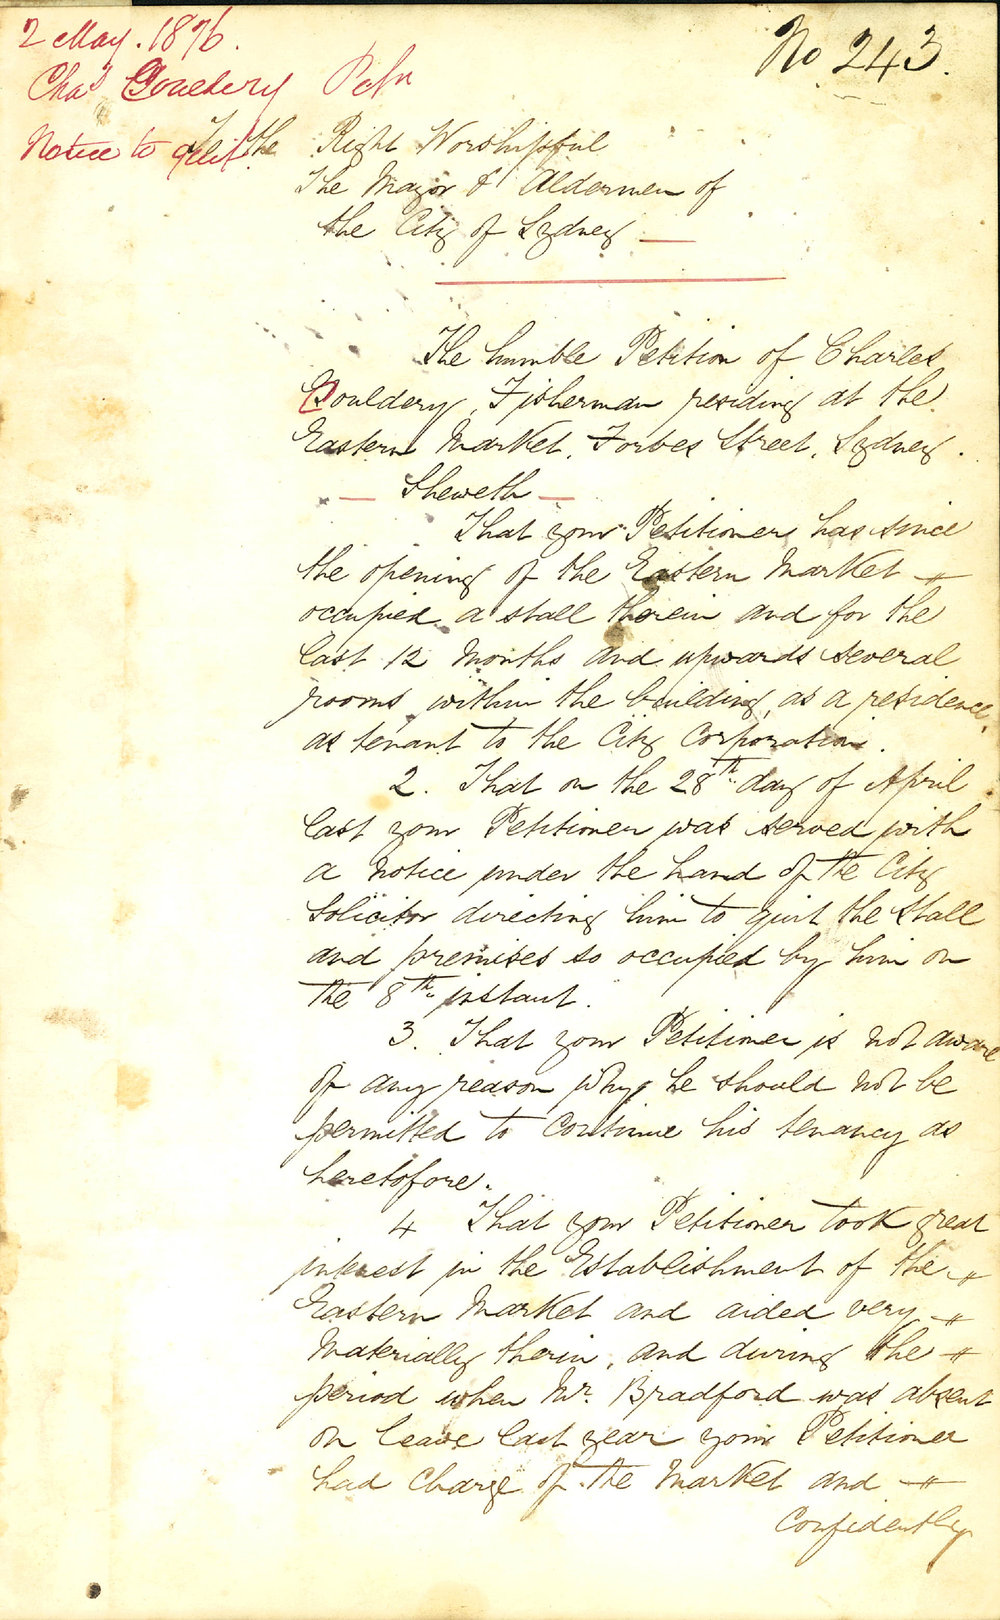 2 May. 1876.
No 243.
Chas Gouldery Petn
Notice to quit
To the Right Worshipful
The Mayor & Aldermen of
the City of Sydney
The humble Petition of Charles
Gouldery, Fisherman residing at the
Eastern Market, Forbes Street, Sydney.
Sheweth
That your Petitioner has since
the opening of the Eastern Market
occupied a stall therein and for the
last 12 Months and upwards several
rooms within the building, as a residence,
as tenant to the City Corporation.
2. That on the 28th day of April
last your Petitioner was served with
a Notice under the hand of the City
Solicitor directing him to quit the Stall
and premises so occupied by him on
the 8th instant.
3. That your Petitioner is not aware
of any reason why he should not be
permitted to continue his tenancy as
heretofore.
4 That your Petitioner took great
interest in the Establishment of the
Eastern Market and aided very
Materially therin, and during the
period when Mr. Bradford was absent
on leave last year your Petitioner
had charge of the Market and
Confidently